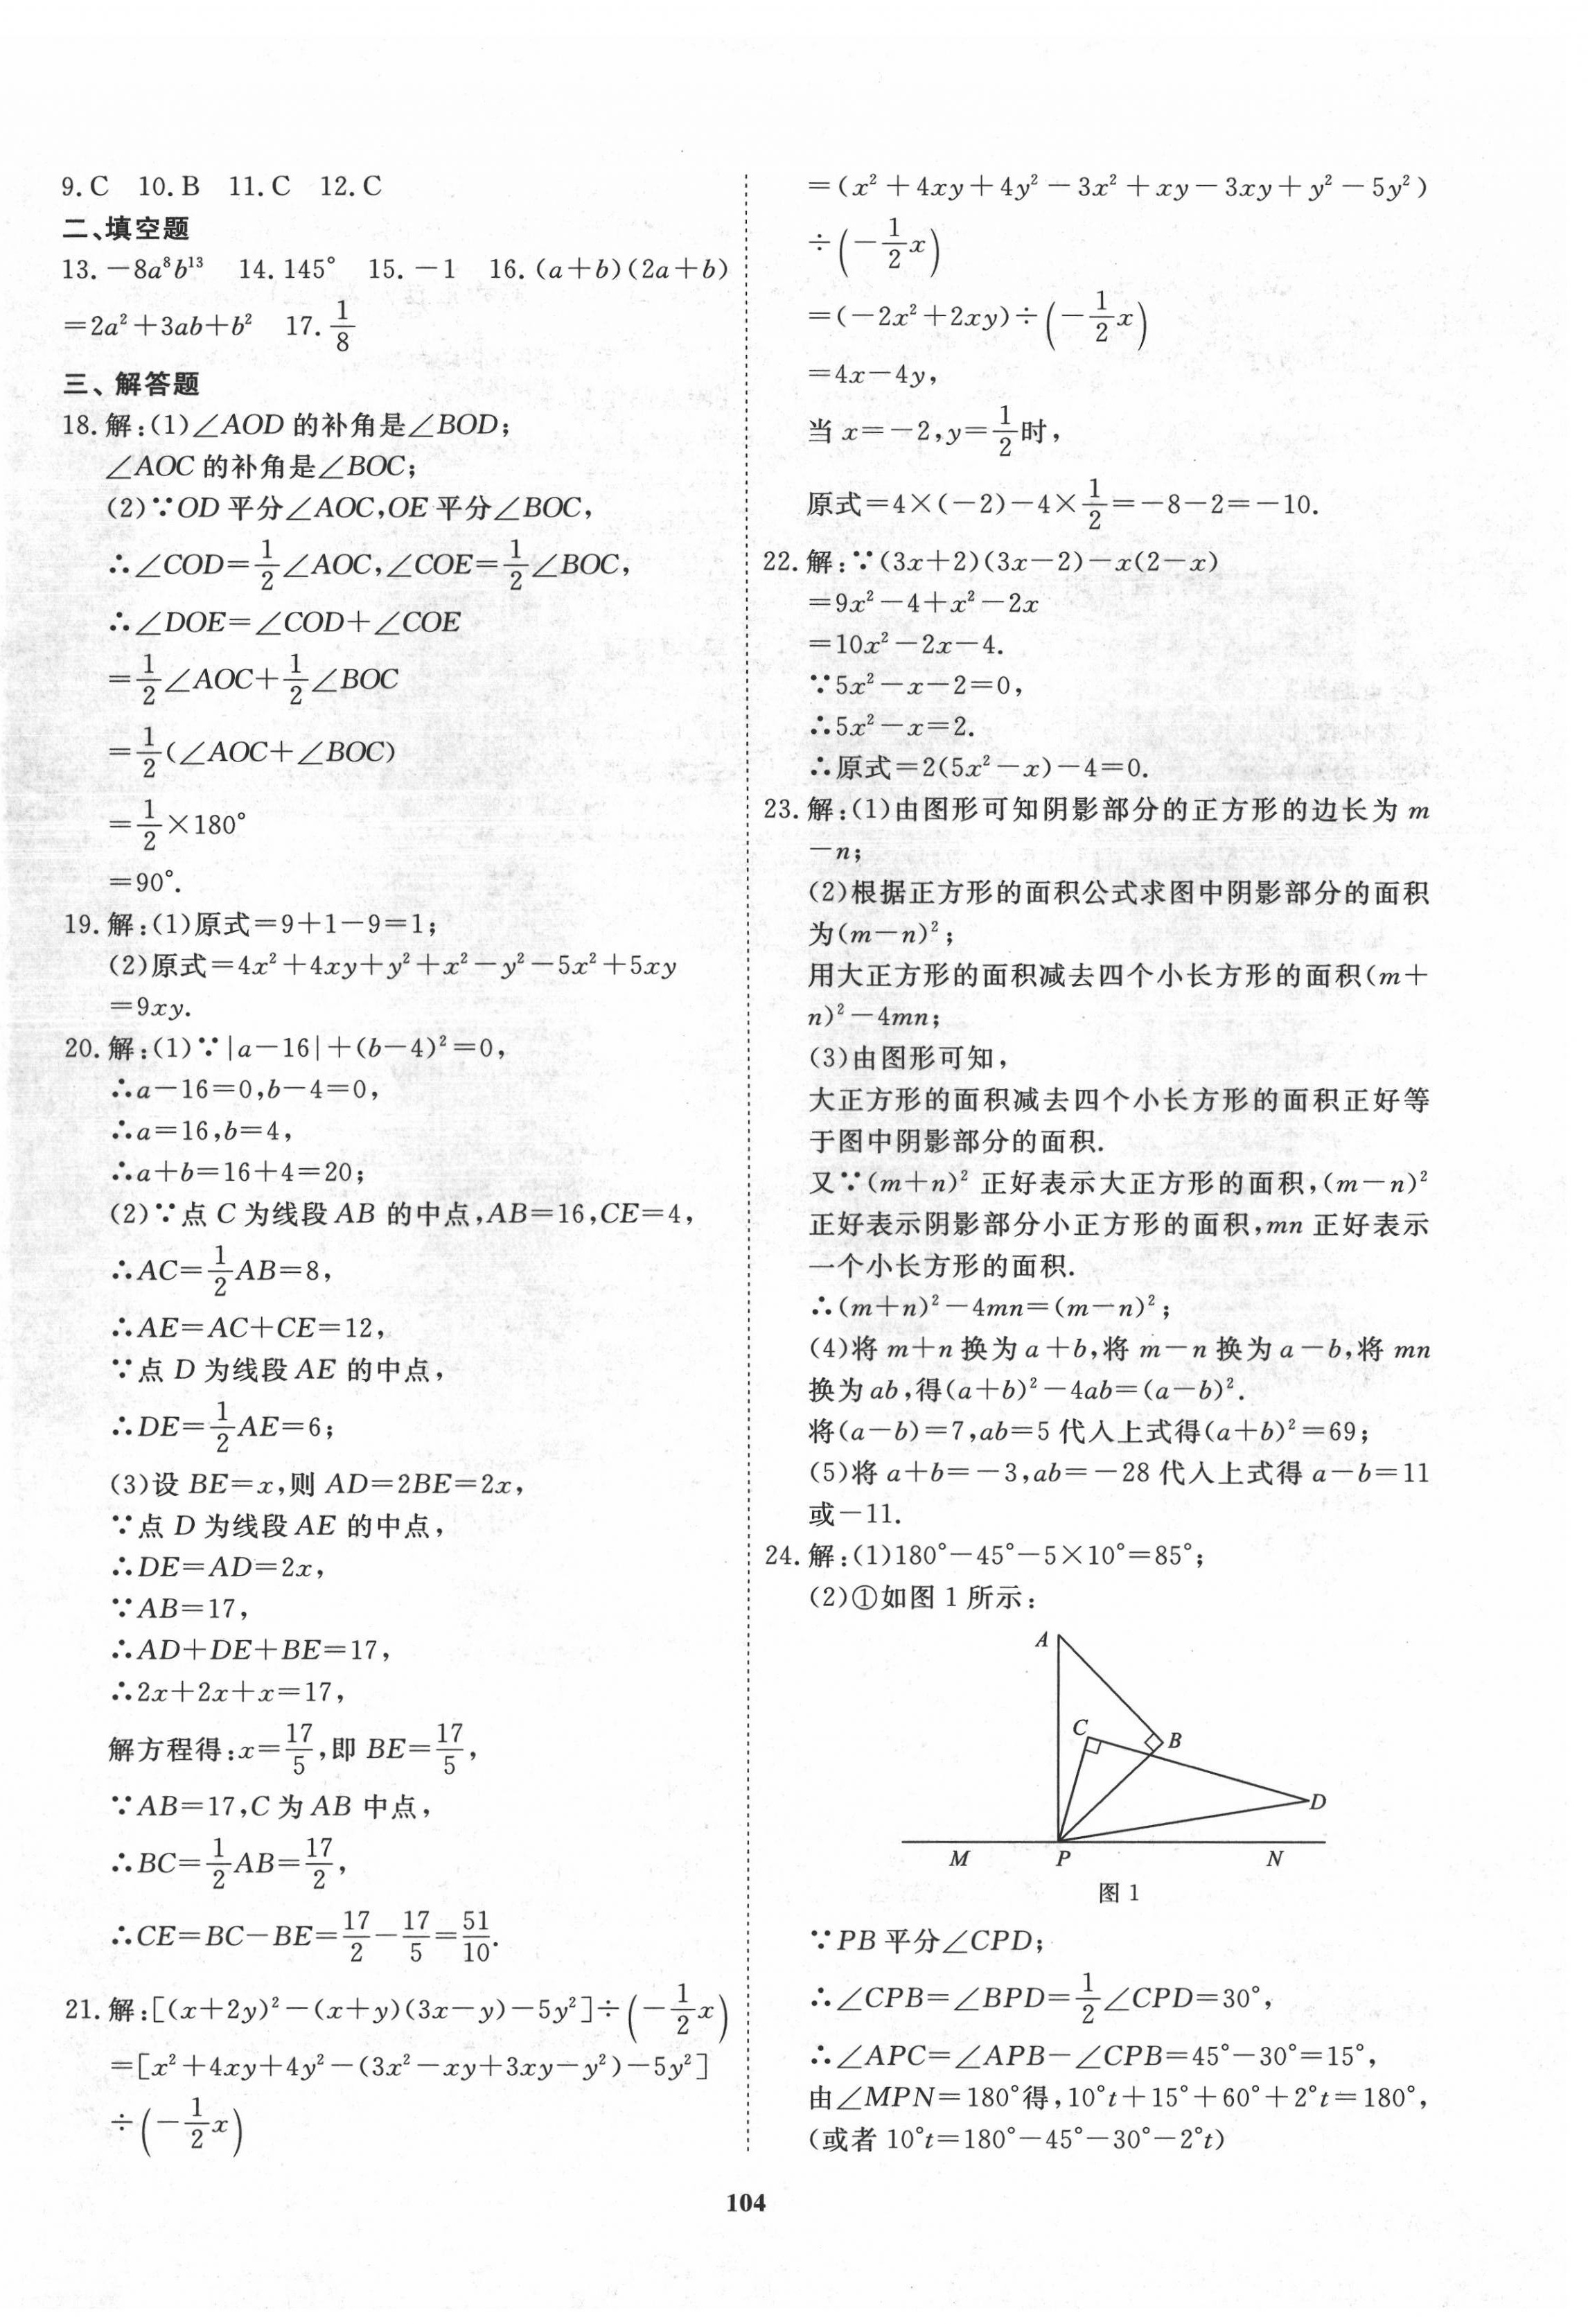 9. C　10. B　11. C　12. C
二、填空题
13. －8a⁸b¹³　14. 145°　15. －1　16. (a＋b)(2a＋b)
＝2a²＋3ab＋b²　17. 1/8
三、解答题
18. 解:(1)∠AOD 的补角是∠BOD;
∠AOC 的补角是∠BOC;
(2)∵OD 平分∠AOC,OE 平分∠BOC,
∴∠COD＝1/2∠AOC,∠COE＝1/2∠BOC,
∴∠DOE＝∠COD＋∠COE
＝1/2∠AOC＋1/2∠BOC
＝1/2(∠AOC＋∠BOC)
＝1/2×180°
＝90°.
19. 解:(1)原式＝9＋1－9＝1;
(2)原式＝4x²＋4xy＋y²＋x²－y²－5x²＋5xy
＝9xy.
20. 解:(1)∵|a－16|＋(b－4)²＝0,
∴a－16＝0,b－4＝0,
∴a＝16,b＝4,
∴a＋b＝16＋4＝20;
(2)∵点 C 为线段 AB 的中点,AB＝16,CE＝4,
∴AC＝1/2AB＝8,
∴AE＝AC＋CE＝12,
∵点 D 为线段 AE 的中点,
∴DE＝1/2AE＝6;
(3)设 BE＝x,则 AD＝2BE＝2x,
∵点 D 为线段 AE 的中点,
∴DE＝AD＝2x,
∵AB＝17,
∴AD＋DE＋BE＝17,
∴2x＋2x＋x＝17,
解方程得:x＝17/5,即 BE＝17/5,
∵AB＝17,C 为 AB 中点,
∴BC＝1/2AB＝17/2,
∴CE＝BC－BE＝17/2－17/5＝51/10.
21. 解:[(x＋2y)²－(x＋y)(3x－y)－5y²]÷(－1/2x)
＝[x²＋4xy＋4y²－(3x²－xy＋3xy－y²)－5y²]
÷(－1/2x)
＝(x²＋4xy＋4y²－3x²＋xy－3xy＋y²－5y²)
÷(－1/2x)
＝(－2x²＋2xy)÷(－1/2x)
＝4x－4y,
当 x＝－2,y＝1/2时,
原式＝4×(－2)－4×1/2＝－8－2＝－10.
22. 解:∵(3x＋2)(3x－2)－x(2－x)
＝9x²－4＋x²－2x
＝10x²－2x－4.
∵5x²－x－2＝0,
∴5x²－x＝2.
∴原式＝2(5x²－x)－4＝0.
23. 解:(1)由图形可知阴影部分的正方形的边长为 m
－n;
(2)根据正方形的面积公式求图中阴影部分的面积
为(m－n)²;
用大正方形的面积减去四个小长方形的面积(m＋
n)²－4mn;
(3)由图形可知,
大正方形的面积减去四个小长方形的面积正好等
于图中阴影部分的面积.
又∵(m＋n)² 正好表示大正方形的面积,(m－n)²
正好表示阴影部分小正方形的面积,mn 正好表示
一个小长方形的面积.
∴(m＋n)²－4mn＝(m－n)²;
(4)将 m＋n 换为 a＋b,将 m－n 换为 a－b,将 mn
换为 ab,得(a＋b)²－4ab＝(a－b)².
将(a－b)＝7,ab＝5 代入上式得(a＋b)²＝69;
(5)将 a＋b＝－3,ab＝－28 代入上式得 a－b＝11
或－11.
24. 解:(1)180°－45°－5×10°＝85°;
(2)①如图 1 所示:
A
C
B
D
M　P　N
图 1
∵PB 平分∠CPD;
∴∠CPB＝∠BPD＝1/2∠CPD＝30°,
∴∠APC＝∠APB－∠CPB＝45°－30°＝15°,
由∠MPN＝180°得,10°t＋15°＋60°＋2°t＝180°,
(或者 10°t＝180°－45°－30°－2°t)
104